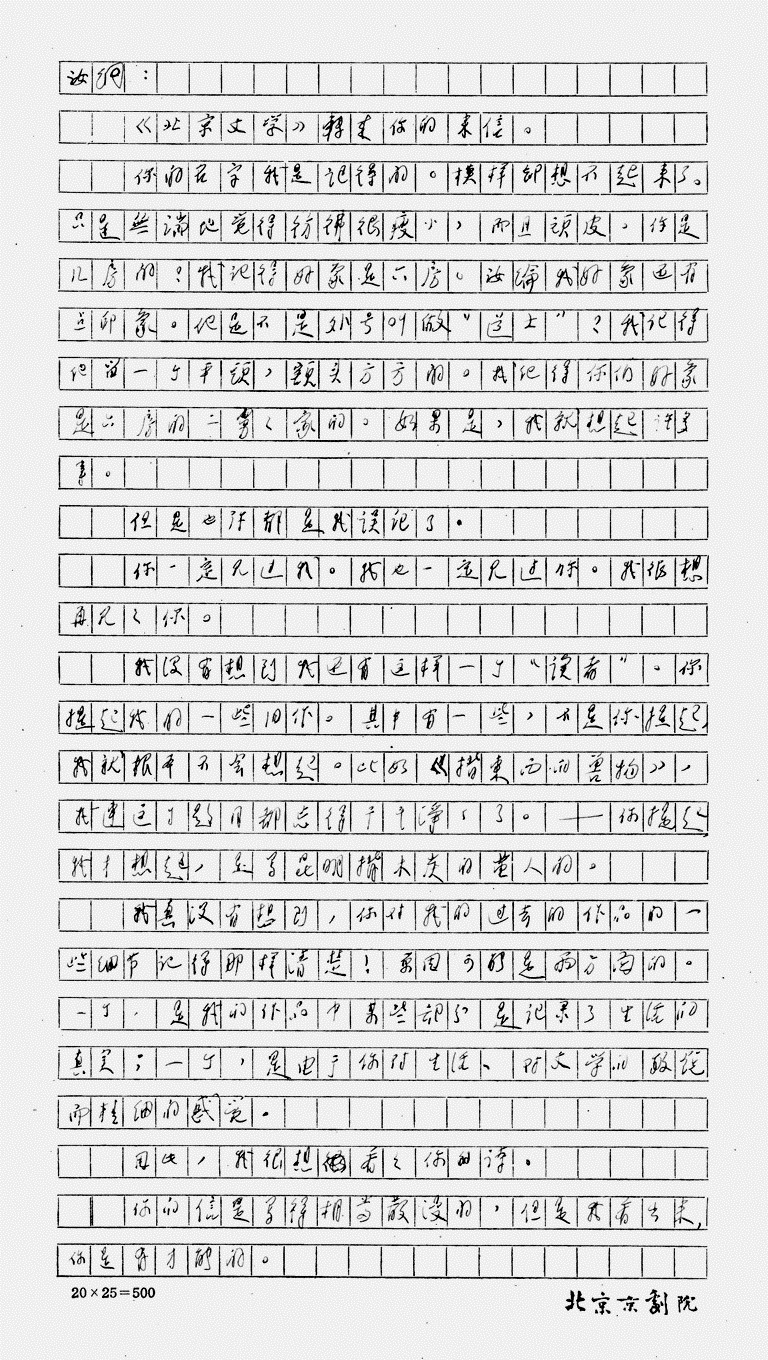 汝纲：
《北京文学》转来你的来信。
你的名字我是记得的。模样却想不起来了。
只是无端地觉得彷彿很瘦小，而且顽皮。你是
几房的？我记得好象是六房。汝纶我好象还有
点印象。他是不是外号叫做“道士”？我记得
他留一个平头，额头方方的。我记得你们好象
是六房的二舅く家的。如果是，我就想起许多
事。
但是也许都是我误记了。
你一定见过我。我也一定见过你。我很想
再见く你。
我没有想到我还有这样一个“读者”。你
提起我的一些旧作。其中有一些，不是你提起，
我就根本不会想起。比如《揹东西的兽物》，
我连这个题目都忘得干干净净了。——你提起
我才想起，是写昆明揹木炭的苗人的。
我真没有想到，你对我的过去的作品的一
些细节记得那样清楚！原因可能是两方面的。
一个，是我的作品中某些部分是记录了生活的
真实；一个，是由于你对生活、对文学的敏锐
而精细的感觉。
因此，我很想看く你的诗。
你的信是写得相当散漫的，但是我看出来，
你是有才能的。
20×25=500
北京京剧院